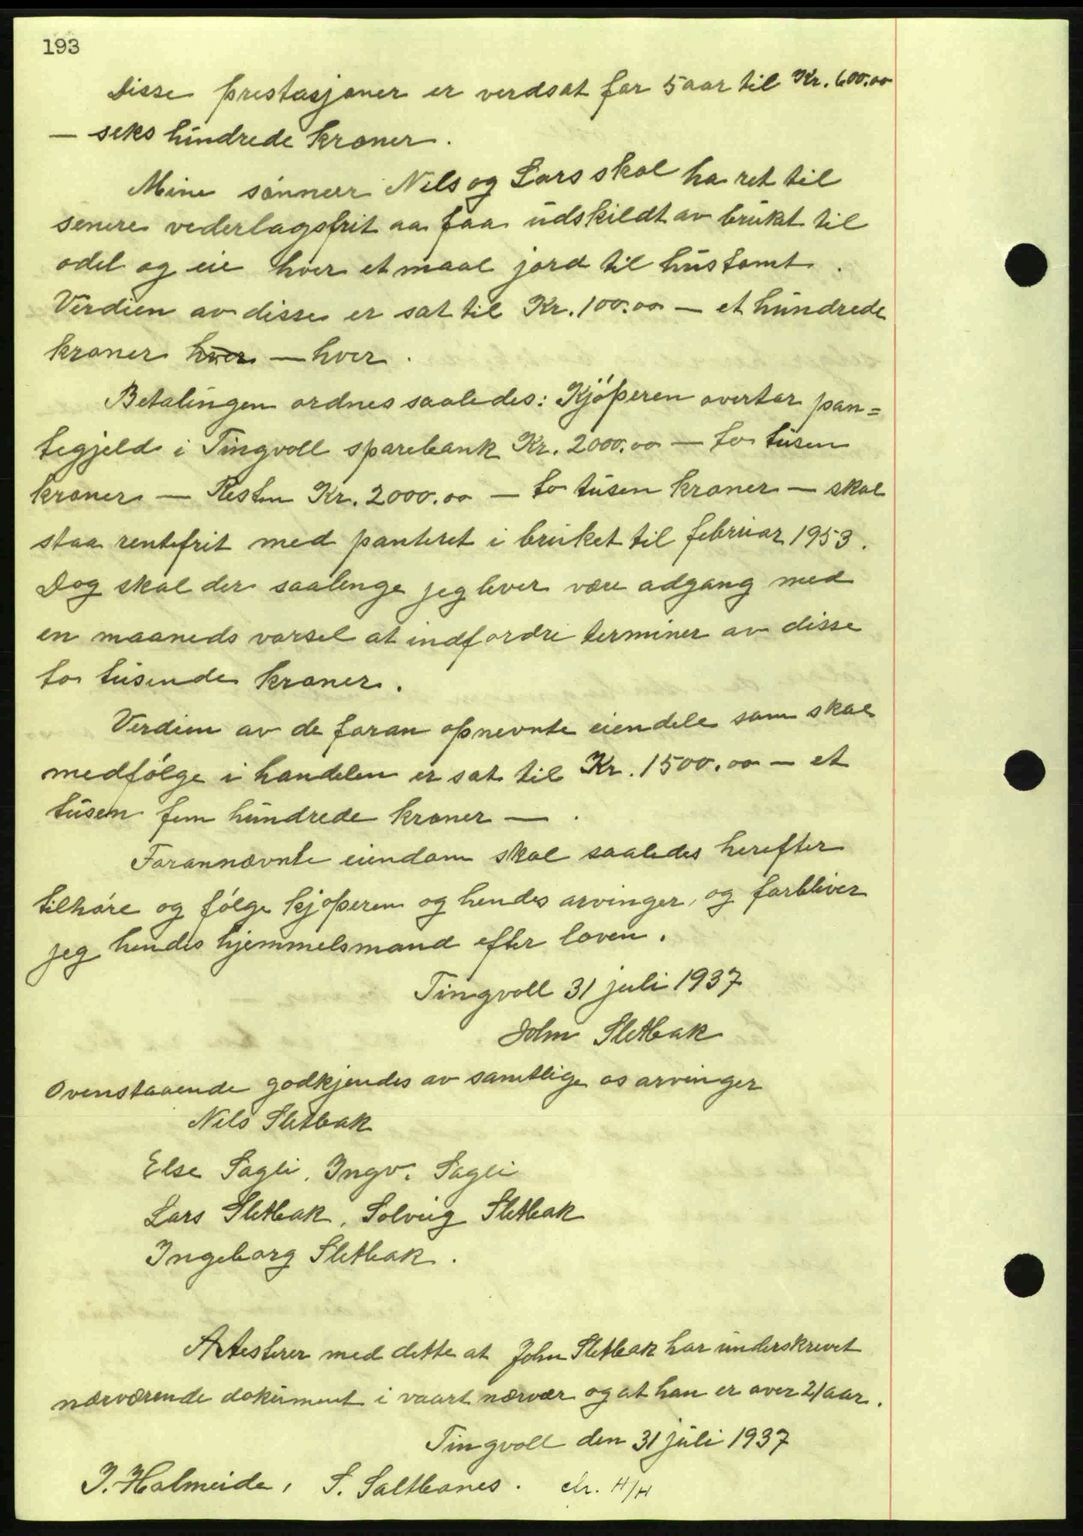 193
Disse prestasjoner er verdsat for 5 aar til Kr. 600.00
— seks hundrede kroner.
Mine sønner Nils og Lars skal ha ret til
senere vederlagsfrit aa faa udskildt av bruket til
odel og eie hver et maal jord til hustomt.
Verdien av disse er sat til Kr. 100.00 — et hundrede
kroner hver — hver.
Betalingen ordnes saaledes: Kjøperen overtar pan=
tegjeld i Tingvoll sparebank Kr. 2000.00 — to tusen
kroner — Resten Kr. 2000.00 — to tusen kroner — skal
staa rentefrit med panteret i bruket til februar 1953.
Dog skal der saalenge jeg lever være adgang med
en maaneds varsel at indfordre terminer av disse
to tusende kroner.
Verdien av de foran opnevnte eiendele som skal
medfølge i handelen er sat til Kr. 1500.00 — et
tusen fem hundrede kroner —.
Forannævnte eiendom skal saaledes herefter
tilhøre og følge kjøperen og hendes arvinger, og forbliver
jeg hendes hjemmelsmand efter loven.
Tingvoll 31 juli 1937
John Sletbak
Ovenstaaende godkjendes av samtlige os arvinger
Nils Sletbak
Else Sagli, Ingv. Sagli
Lars Sletbak, Solveig Sletbak
Ingeborg Sletbak.
Attesterer med dette at John Sletbak har underskrevet
nærværende dokument i vaart nærvær og at han er over 21 aar.
Tingvoll den 31 juli 1937
I. Halmeide, S. Saltbones. H/H